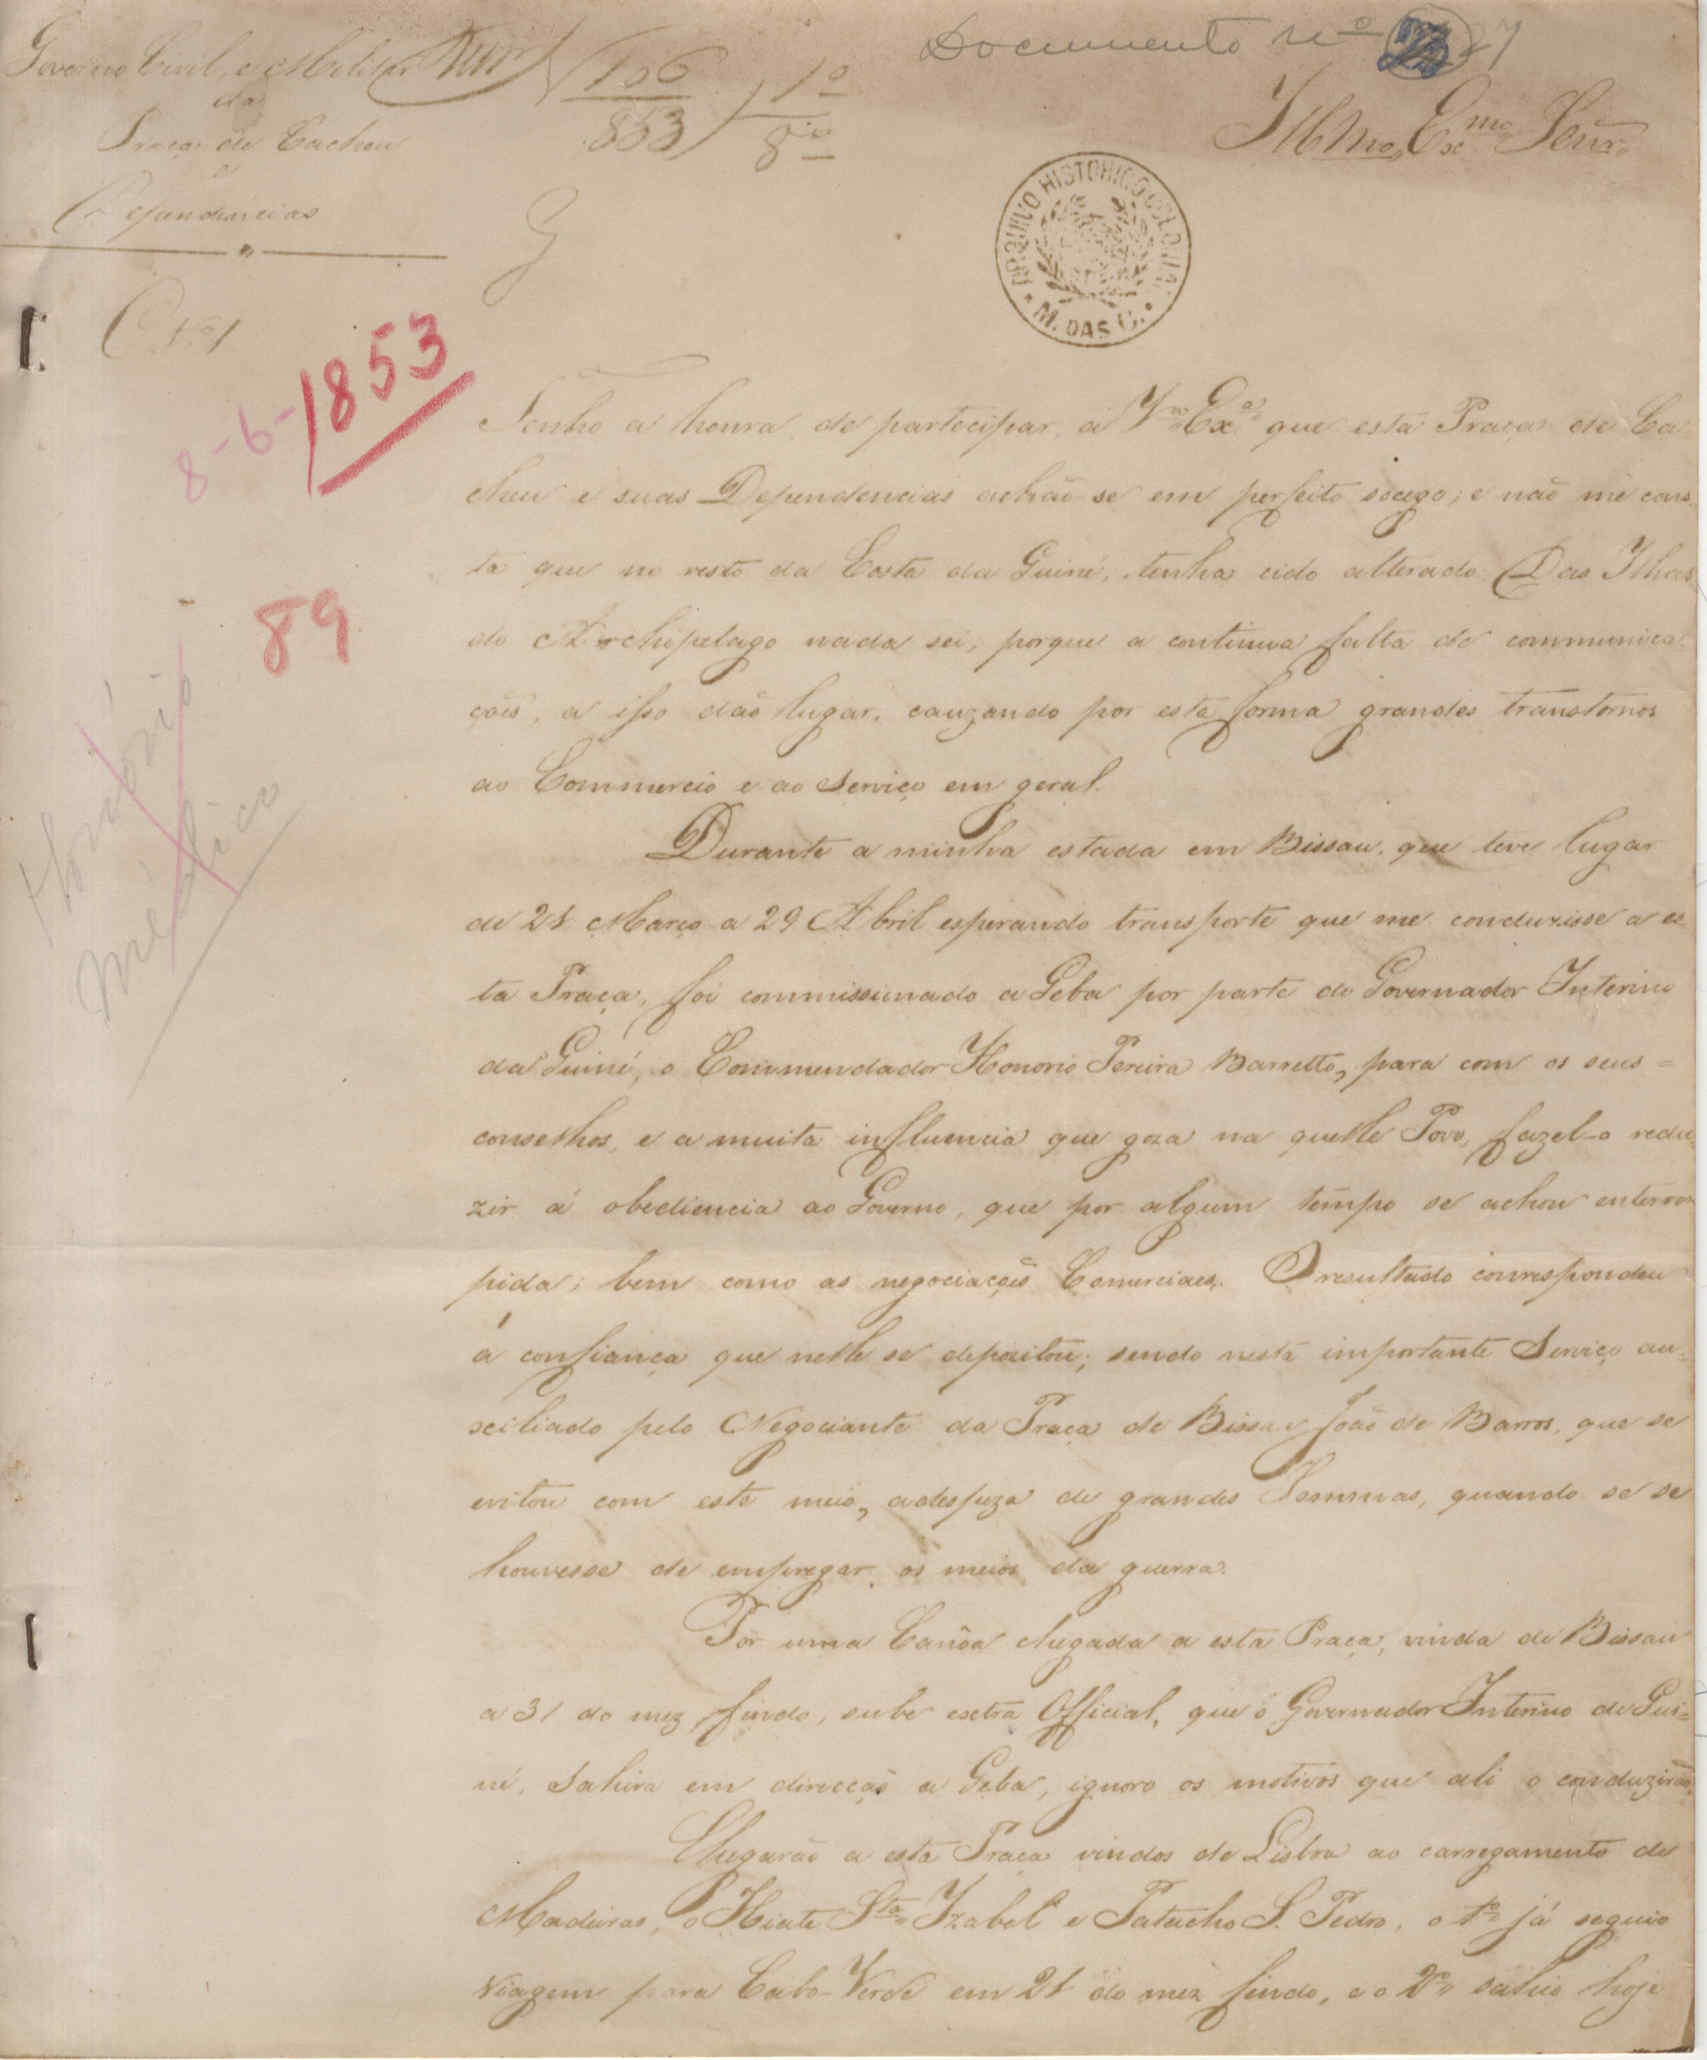 Documento nº 87
Governo Civil, e Militar
da
Praça de Cacheu
e
Dependencias
106
853
1º
8
Illmo. Exmo Senr.
ARQUIVO HISTORICO COLONIAL
M. DAS C.
8-6-1853
89
Honório
médico
Tenho a honra de partecipar a V.ª Ex.ª que esta Praça de Ca
cheu e suas Dependencias achão-se em perfeito socego; e não me cons
ta que no resto da Costa da Guiné, tenha cido alterado. Das Ilhas
do Archipelago nada sei, porque a continua falta de communica
çoẽs, a isso dão lugar, cauzando por esta forma grandes transtornos
ao Commercio e ao Serviço em geral.
Durante a minha estada em Bissau, que teve lugar
de 21 Março a 29 Abril esperando transporte que me conduzisse a es
ta Praça, foi commissionado a Geba por parte do Governador Interino
da Guiné, o Commendador Honorio Pereira Barretto, para com os seus =
conselhos, e a muita influencia que goza na quelle Povo, fazel-o redu
zir á obediencia ao Governo, que por algum tempo se achou enterrom
pida; bem como as negociaçoẽs Comerciaes. O resultado correspondeu
á confiança que nelle se depozitou; sendo neste importante Serviço au=
xciliado pelo Negociante da Praça de Bissau João de Barros, que se
evitou com este meio, adespeza de grandes Sommas, quando se se
houvesse de empregar os meios da guerra.
Por uma Canôa chegada a esta Praça, vinda de Bissau
a 31 do mez findo, sube extra Official, que o Governador Interino de Gui=
né, Sahira em direcção a Geba, ignoro os motivos que ali o conduzirão.
Chegarão a esta Praça vindos de Lisboa ao carregamento de
Madeiras, o Hiate Sta. Izabel e Patacho S. Pedro, o 1º já seguio
viagem para Cabo-Verde em 21 do mez findo, e o 2º sahio hoje